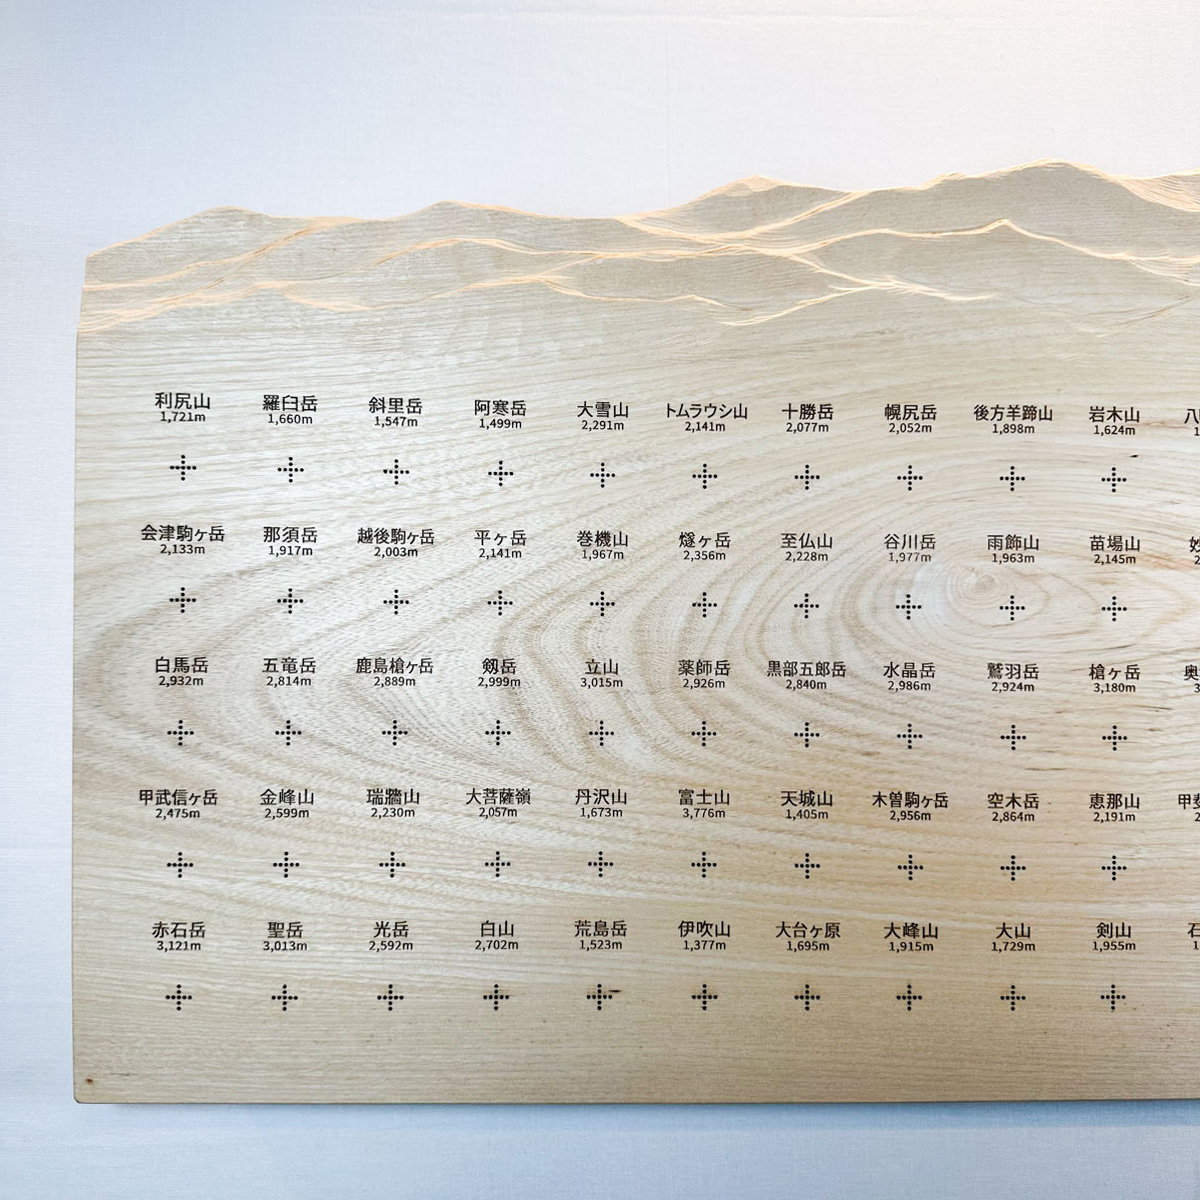 利尻山 羅臼岳 斜里岳 阿寒岳 大雪山 トムラウシ山 十勝岳 幌尻岳 後方羊蹄山 岩木山 八
1,721m 1,660m 1,547m 1,499m 2,291m 2,141m 2,077m 2,052m 1,898m 1,624m 1
会津駒ヶ岳 那須岳 越後駒ヶ岳 平ヶ岳 巻機山 燧ヶ岳 至仏山 谷川岳 雨飾山 苗場山 妙
2,133m 1,917m 2,003m 2,141m 1,967m 2,356m 2,228m 1,977m 1,963m 2,145m 2
白馬岳 五竜岳 鹿島槍ヶ岳 剱岳 立山 薬師岳 黒部五郎岳 水晶岳 鷲羽岳 槍ヶ岳 奥
2,932m 2,814m 2,889m 2,999m 3,015m 2,926m 2,840m 2,986m 2,924m 3,180m 3
甲武信ヶ岳 金峰山 瑞牆山 大菩薩嶺 丹沢山 富士山 天城山 木曽駒ヶ岳 空木岳 恵那山 甲斐
2,475m 2,599m 2,230m 2,057m 1,673m 3,776m 1,405m 2,956m 2,864m 2,191m 2
赤石岳 聖岳 光岳 白山 荒島岳 伊吹山 大台ヶ原 大峰山 大山 剣山 石
3,121m 3,013m 2,592m 2,702m 1,523m 1,377m 1,695m 1,915m 1,729m 1,955m 1